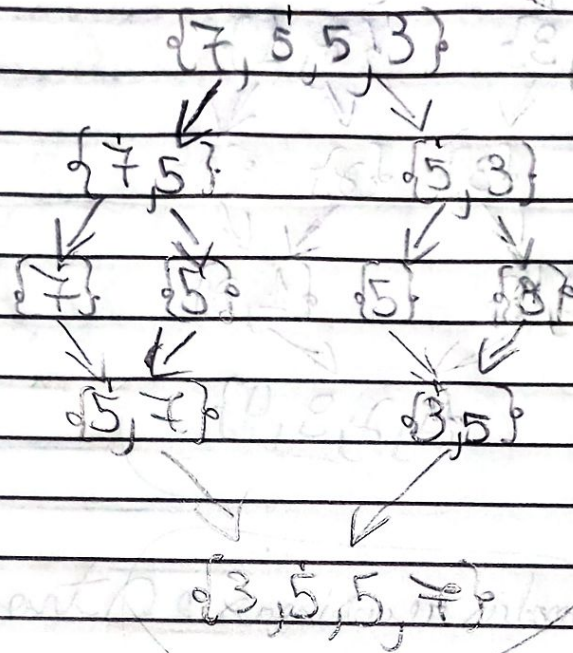 {7, 5, 5, 3}
{7, 5} {5, 3}
{7} {5} {5} {3}
{5, 7} {3, 5}
{3, 5, 5, 7}